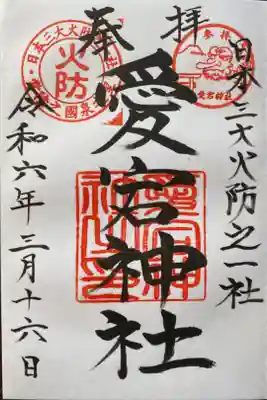 奉拝
日本三大火防之一社
愛宕神社
令和六年三月十六日
日本三大火防
火防
参拝
愛宕神社